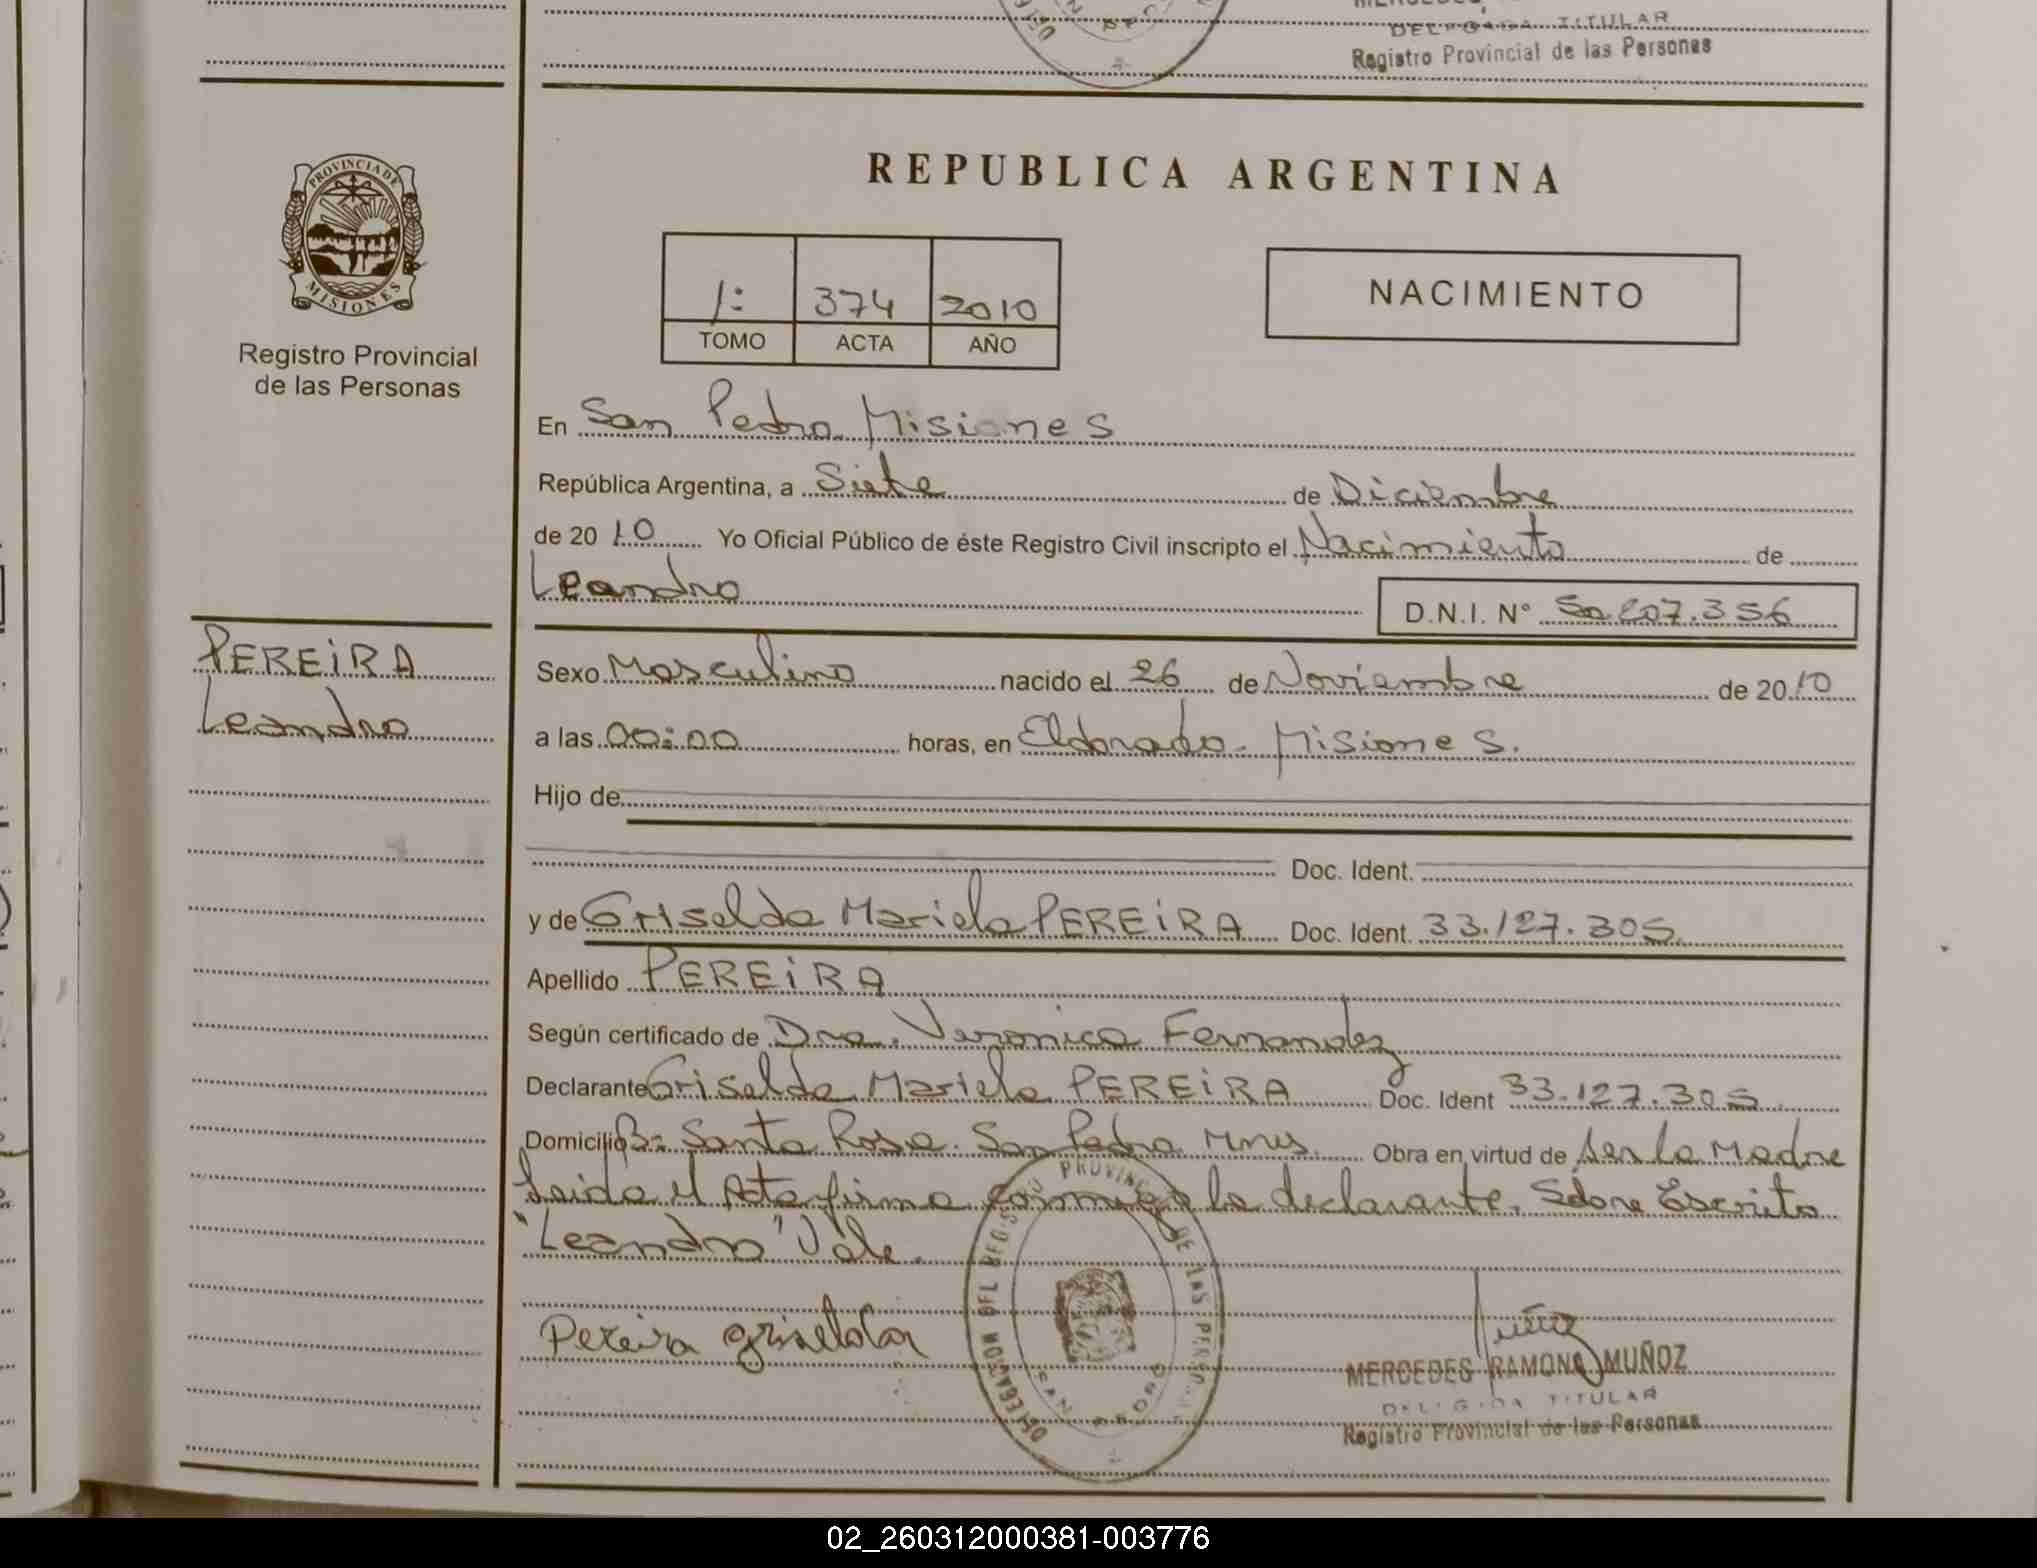 DELEGADA TITULAR
Registro Provincial de las Personas
PROVINCIA DE
MISIONES
Registro Provincial
de las Personas
PEREIRA
Leandro
REPUBLICA ARGENTINA
1: 374 2010
TOMO ACTA AÑO
NACIMIENTO
En San Pedro Misiones
República Argentina, a Siete de Diciembre
de 2010 Yo Oficial Público de éste Registro Civil inscripto el Nacimiento de
Leandro D.N.I. N° 50.207.356
Sexo Masculino nacido el 26 de Noviembre de 2010
a las 00:00 horas, en Eldorado - Misiones.
Hijo de
Doc. Ident.
y de Griselda Mariela PEREIRA Doc. Ident. 33.127.305
Apellido PEREIRA
Según certificado de Dra. Veronica Fernandez
Declarante Griselda Mariela PEREIRA Doc. Ident 33.127.305
Domicilio Bº Santa Rosa. San Pedro Mnes. Obra en virtud de ser la Madre
Leida el Acta firma conmigo la declarante. Sobre Escrito
"Leandro" Vale.
Pereira Griselda
DELEGACION DEL REGISTRO PROVINCIAL DE LAS PERSONAS
SAN PEDRO
MERCEDES RAMONA MUÑOZ
DELEGADA TITULAR
Registro Provincial de las Personas
02_260312000381-003776